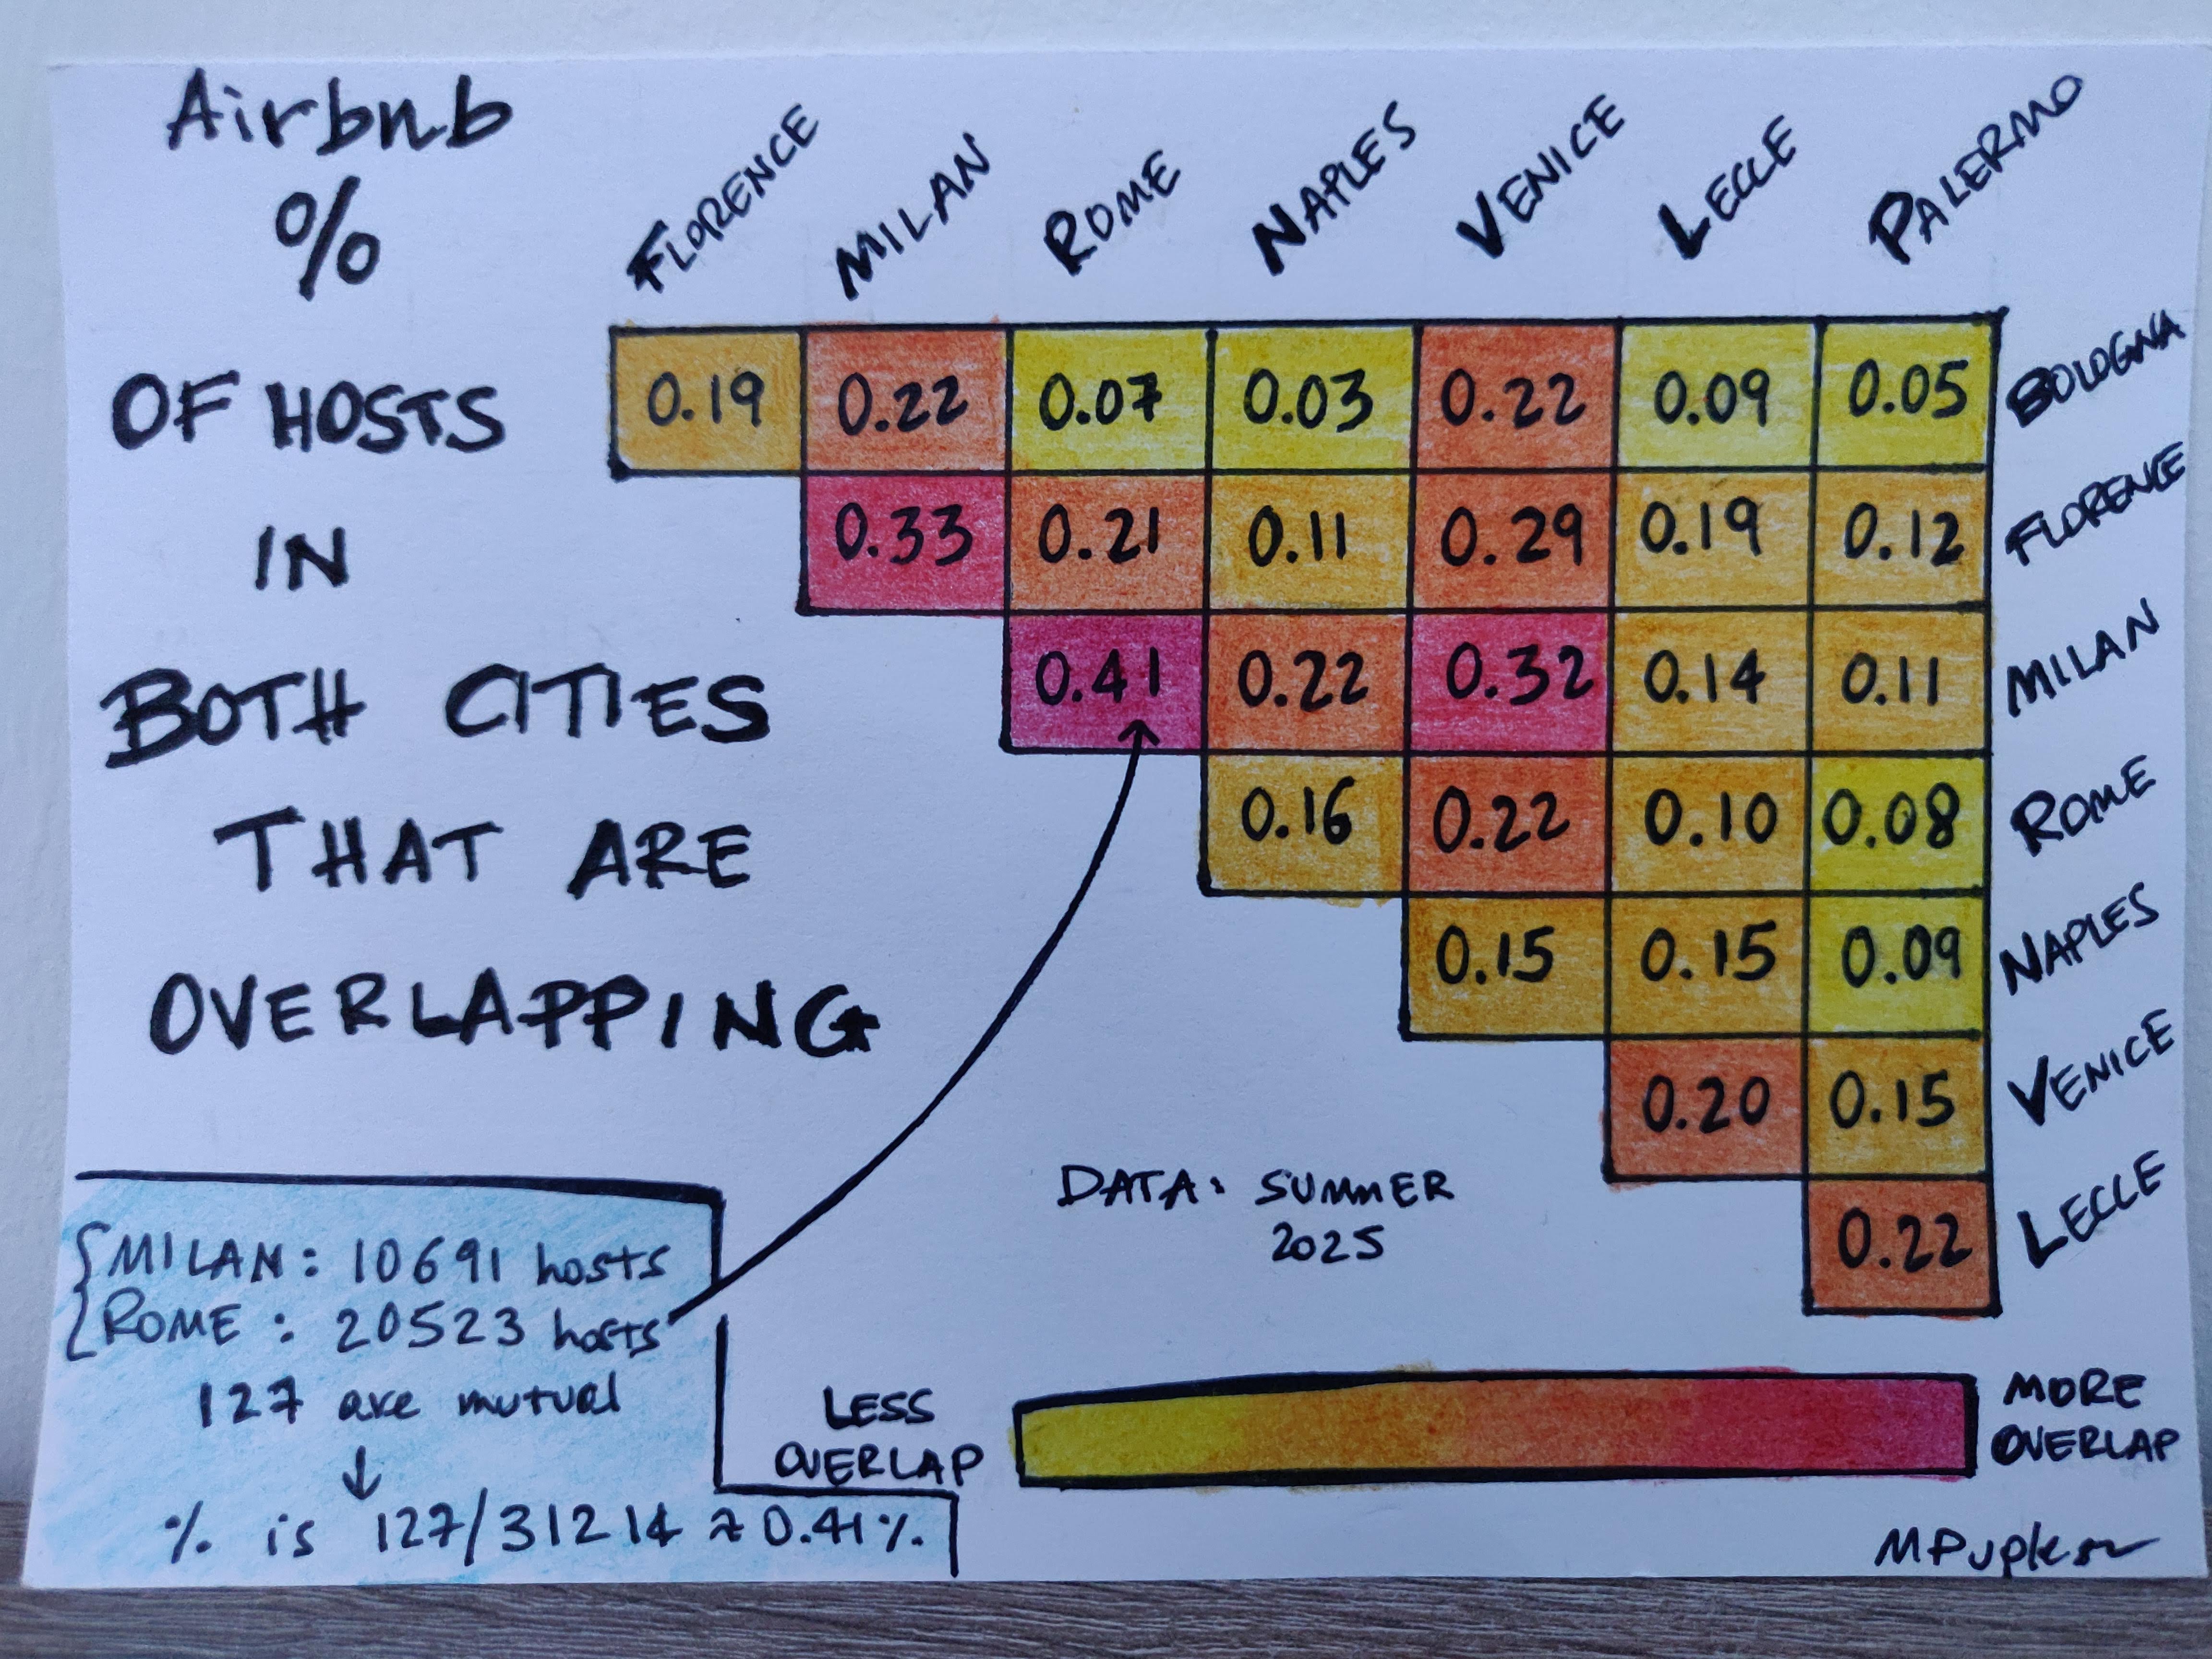 Airbnb
%
OF HOSTS
IN
BOTH CITIES
THAT ARE
OVERLAPPING
FLORENCE MILAN ROME NAPLES VENICE LECCE PALERMO
0.19 0.22 0.07 0.03 0.22 0.09 0.05 BOLOGNA
0.33 0.21 0.11 0.29 0.19 0.12 FLORENCE
0.41 0.22 0.32 0.14 0.11 MILAN
0.16 0.22 0.10 0.08 ROME
0.15 0.15 0.09 NAPLES
0.20 0.15 VENICE
0.22 LECCE
DATA: SUMMER
2025
MILAN: 10691 hosts
ROME: 20523 hosts
127 are mutual
↓
% is 127/31214 ≈ 0.41%
LESS
OVERLAP
MORE
OVERLAP